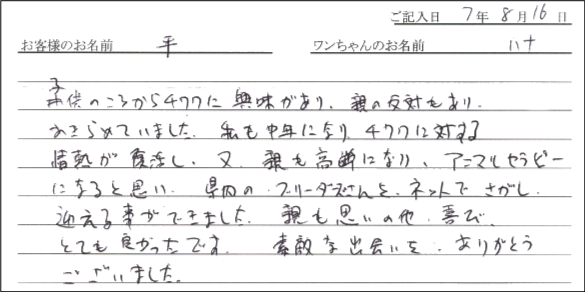 ご記入日 7年8月16日
お客様のお名前 平 ワンちゃんのお名前 ハナ
子供のころからチワワに興味があり、親の反対もあり、
あきらめていました。私も中年になり、チワワに対する
情熱が復活し、又、親も高齢になり、アニマルセラピー
になると思い、県内のブリーダーさんを、ネットでさがし、
迎える事ができました。親も思いの他、喜び、
とても良かったです。素敵な出会いを、ありがとう
ございました。